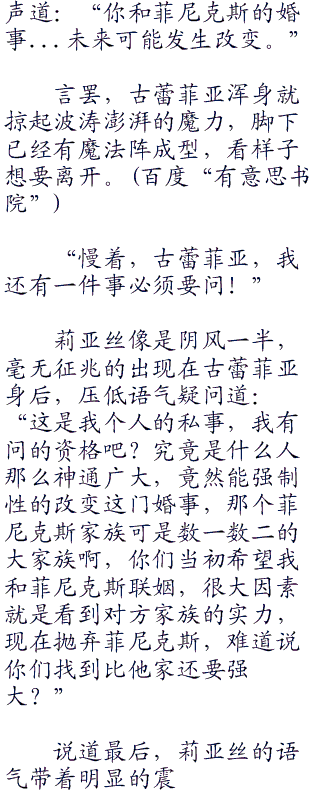 声道：“你和菲尼克斯的婚
事...未来可能发生改变。”
言罢，古蕾菲亚浑身就
掠起波涛澎湃的魔力，脚下
已经有魔法阵成型，看样子
想要离开。(百度“有意思书
院”)
“慢着，古蕾菲亚，我
还有一件事必须要问！”
莉亚丝像是阴风一半，
毫无征兆的出现在古蕾菲亚
身后，压低语气疑问道：
“这是我个人的私事，我有
问的资格吧？究竟是什么人
那么神通广大，竟然能强制
性的改变这门婚事，那个菲
尼克斯家族可是数一数二的
大家族啊，你们当初希望我
和菲尼克斯联姻，很大因素
就是看到对方家族的实力，
现在抛弃菲尼克斯，难道说
你们找到比他家还要强
大？”
说道最后，莉亚丝的语
气带着明显的震